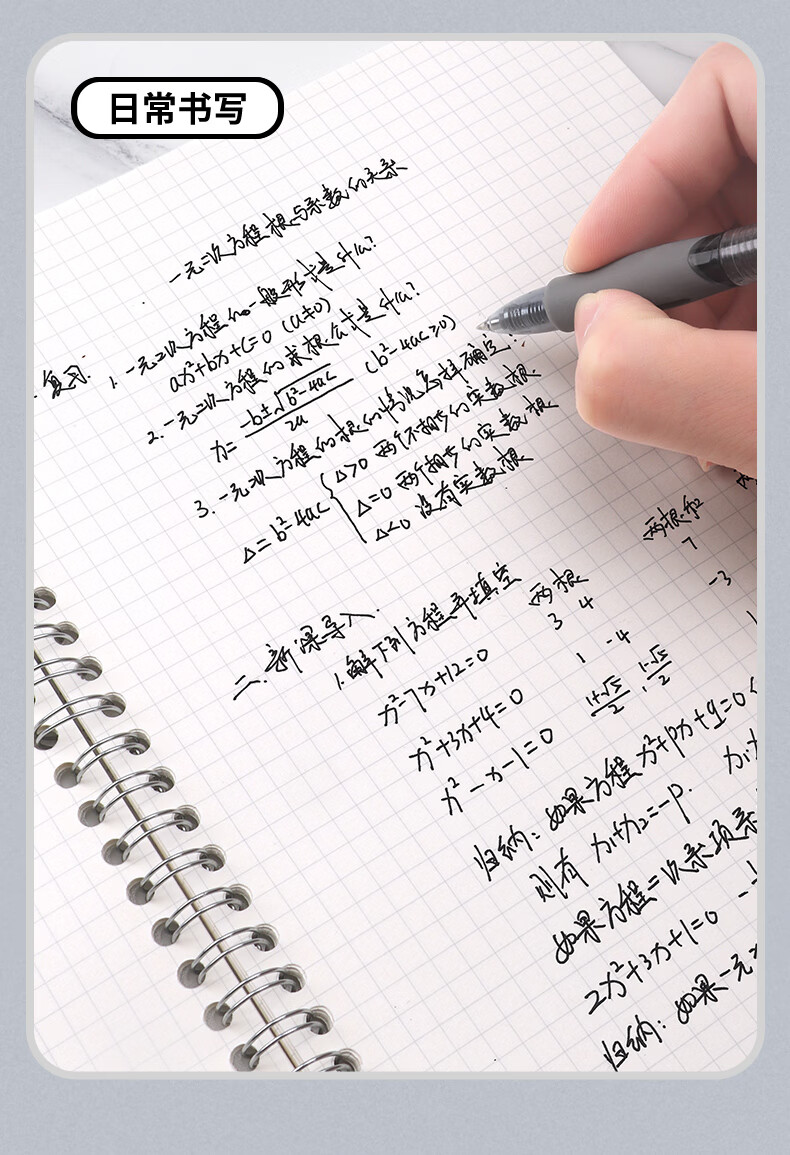 日常书写
一元二次方程根与系数的关系
一.复习:
1.一元二次方程的一般形式是什么?
ax²+bx+c=0 (a≠0)
2.一元二次方程的求根公式是什么?
x=(-b±√b²-4ac)/2a (b²-4ac≥0)
3.一元二次方程的根的情况怎样确定?
Δ=b²-4ac { Δ>0 两个不相等的实数根
Δ=0 两个相等的实数根
Δ<0 没有实数根
二.新课导入.
1.解下列方程并填空
两根 两根和
x²-7x+12=0 3 4 7
x²+3x+4=0 1 -4 -3
x²-x-1=0 (1+√5)/2, (1-√5)/2 1
归纳: 如果方程x²+px+q=0
则有 x₁+x₂=-p.
如果方程二次系项系
2x²+3x+1=0
归纳: 如果一元